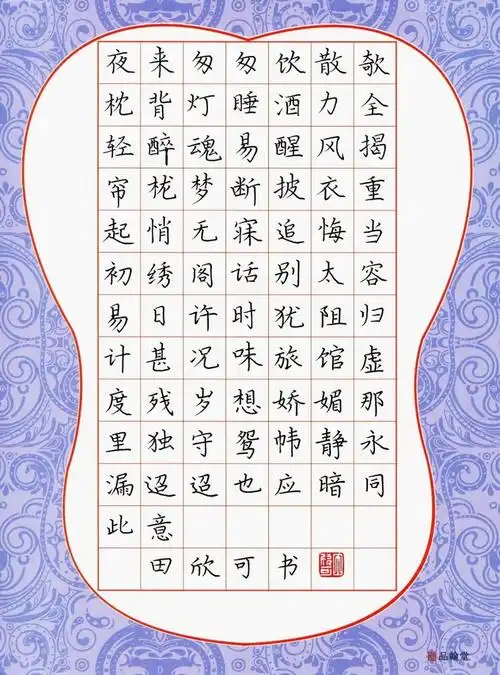 夜来匆匆饮散欹
枕背灯睡酒力全
轻醉魂易醒风揭
帘栊梦断披衣重
起悄无寐追悔当
初绣阁话别太容
易日许时犹阻归
计甚况味旅馆虚
度残岁想娇媚那
里独守鸳帏静永
漏迢迢也应暗同
此意
田欣可书
品翰堂